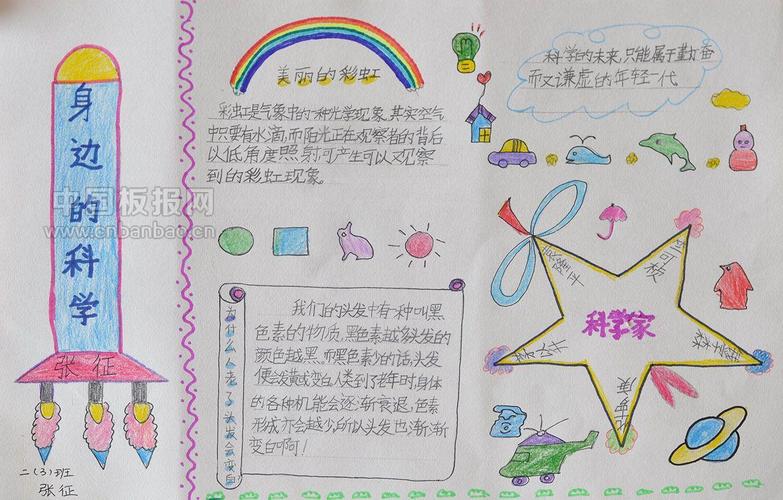 身边的科学
张征
二(3)班
张征
中国板报网
www.cnbanbao.cn
美丽的彩虹
彩虹是气象中的一种光学现象。其实空气
中只要有水滴,而阳光正在观察者的背后
以低角度照射,可产生可以观察
到的彩虹现象。
科学的未来,只能属于勤奋
而又谦虚的年轻一代
为什么人老了头发会变白
我们的头发中有一种叫黑
色素的物质,黑色素越多头发的
颜色越黑,而黑色素少的话,头发
便会发黄或变白。人类到了老年时,身体
的各种机能会逐渐衰退,色素
形成亦会越少,所以头发也渐渐
变白啊!
科学家